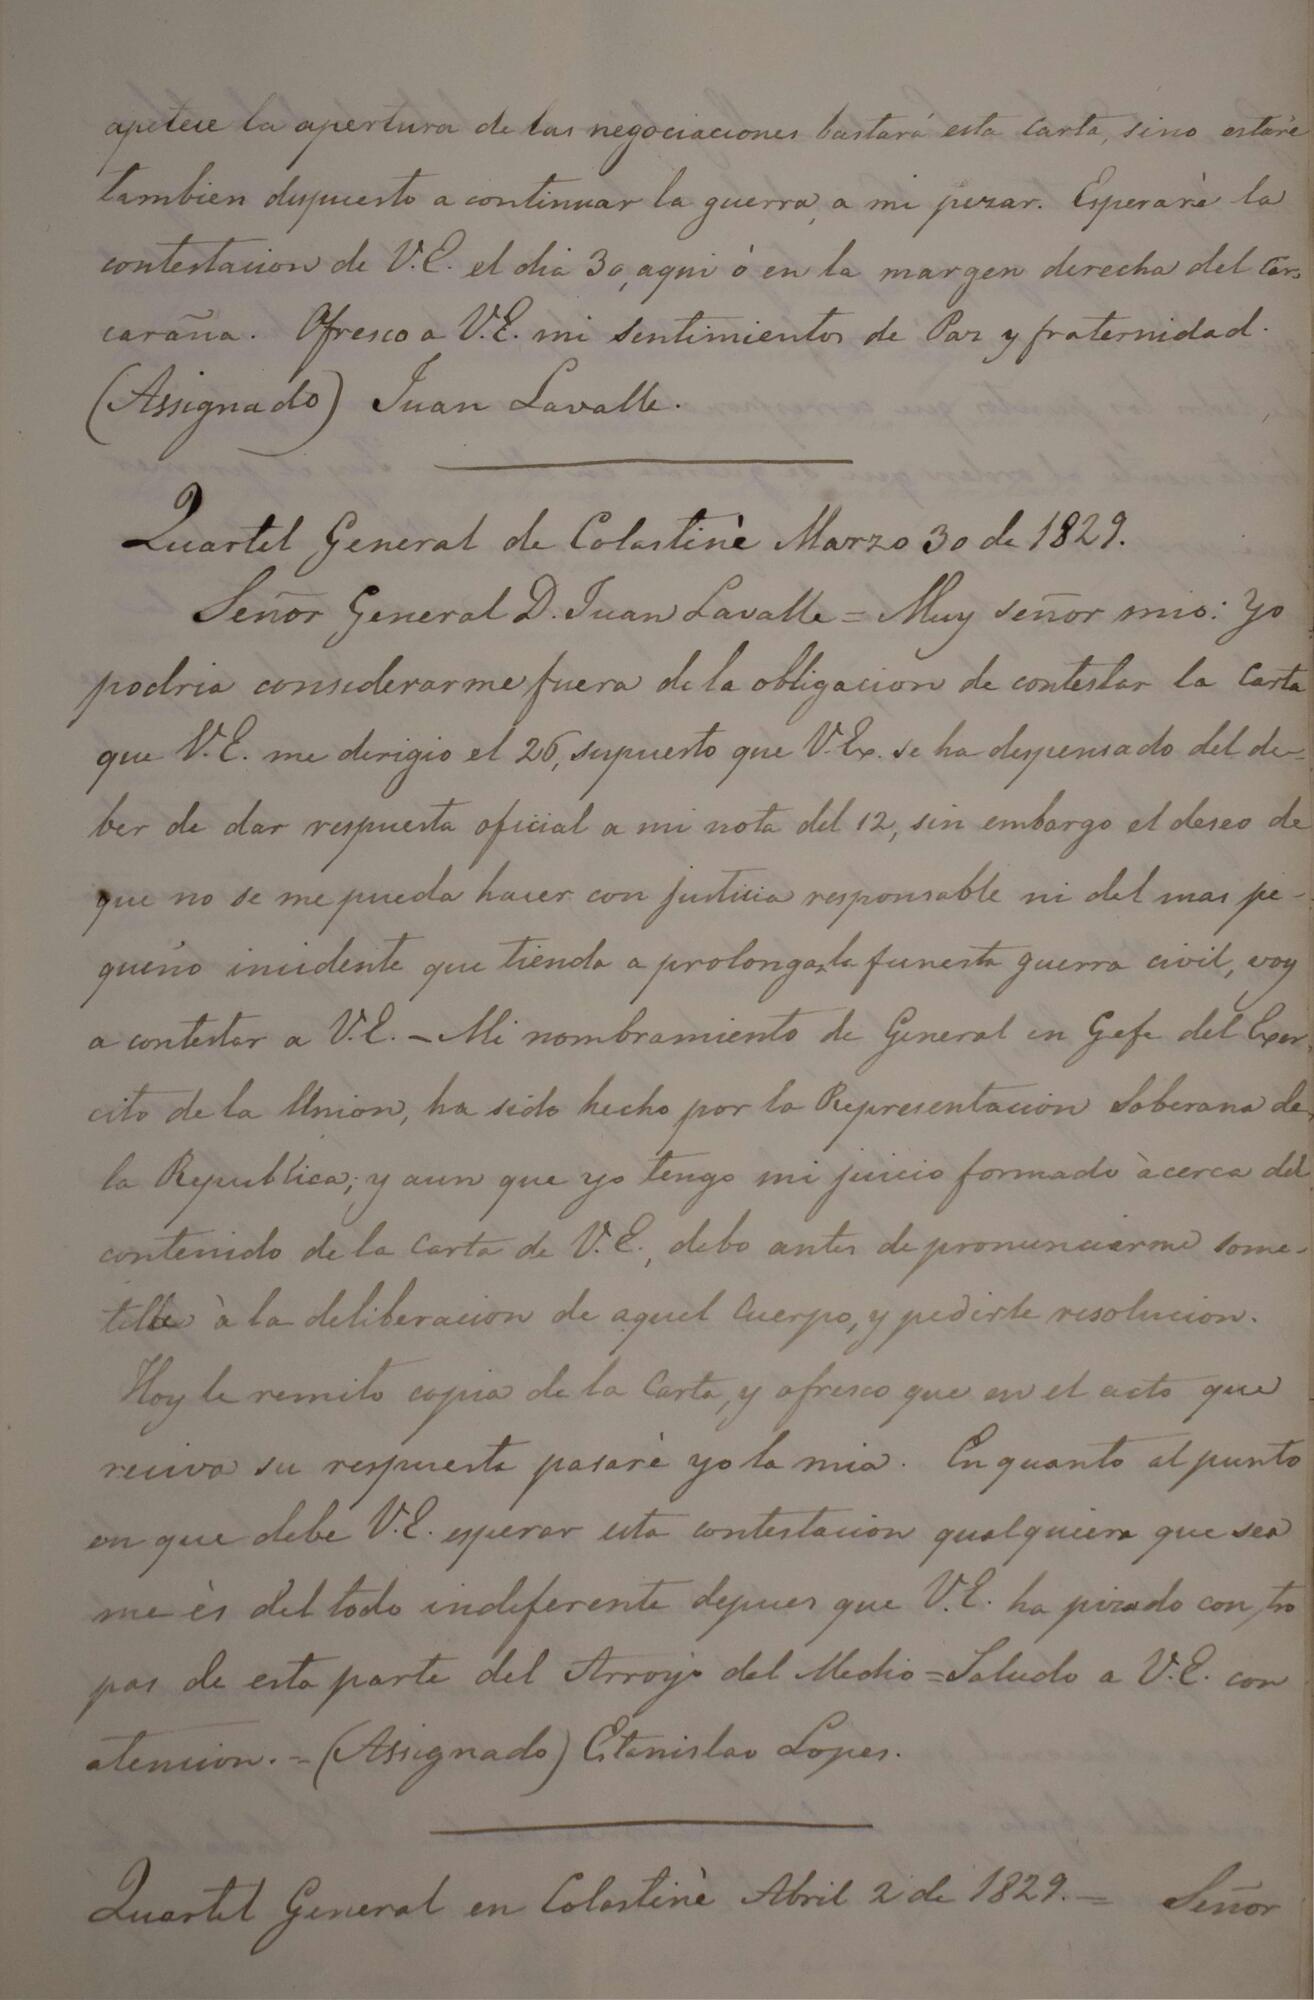 apetese la apertura de las negociaciones bastará esta Carta, sino estaré
tambien dispuesto a continuar la guerra, a mi pezar. Esperarè la
contestacion de V.E. el dia 30, aqui ò en la margen derecha del Car-
caraña. Ofresco a V.E. mi sentimientos de Paz y fraternidad.
(Assignado) Juan Lavalle.
Quartel General de Colastinè Marzo 30 de 1829.
Señor General D. Juan Lavalle = Muy señor mio: Yo
podria considerarme fuera de la obligacion de contestar la Carta
que V.E. me dirigio el 26, supuesto que V.Ex. se ha despensado del de-
ber de dar respuesta oficial a mi nota del 12, sin embargo el deseo de
que no se me pueda hacer con justicia responsable ni del mas pe-
queño incidente que tienda a prolongar la funesta guerra civil, voy
a contestar a V.E. - Mi nombramiento de General en Gefe del Exer-
cito de la Union, ha sido hecho por la Representacion Soberana de
la Republica; y aun que yo tengo mi juicio formado àcerca del
contenido de la Carta de V.E., debo antes de pronunciarme some-
telle à la deliberacion de aquel Cuerpo, y pedirle resolucion.
Hoy le remito copia de la Carta, y ofresco que en el acto que
reciva su respuesta pasarè yo la mia. En quanto al punto
en que debe V.E. esperar esta contestacion qualquiera que sea
me ès del todo indiferente depues que V.E. ha pizado con tro
pas de esta parte del Arroyo del Medio = Saludo a V.E. con
atencion. = (Assignado) Estanislao Lopes.
Quartel General en Colastinè Abril 2 de 1829. = Señor